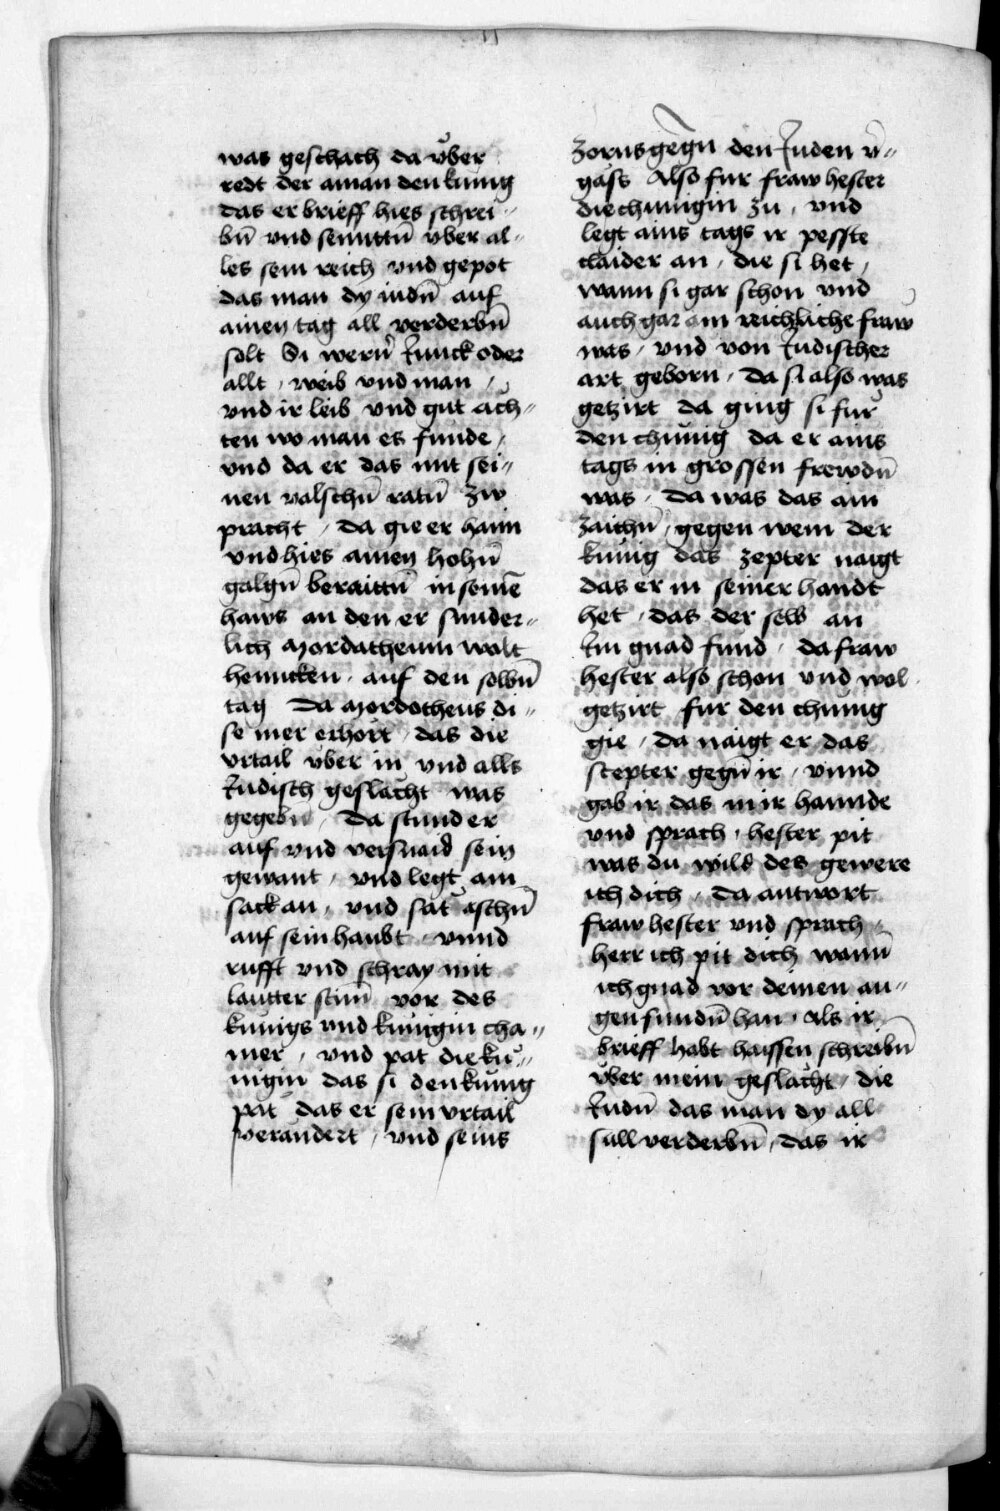 was geschach da vͦber
redt der aman den kunig
das er brieff hies schrei⸗
bn̄ vnd senntten̄ vber al⸗
les sein reich vnd gepot
das man dy judn̄ auf
ainen tag all verderbn̄
solt Si wern̄ Junck oder
allt / weib vnd man /
vnd ir leib vnd gut ach⸗
ten wo man es funde /
vnd da er das mit sei⸗
nen valschn̄ ratn̄ zw
pracht / da gie er haim
vnd hies ainen hohn̄
galgn̄ beraittn̄ in seinē
haws an den er sunder⸗
lich Mordacheum wolt
henncken / auf den selbn̄
tag Da Mordocheus di⸗
se mer erhort / das die
vrtail vber in vnd alls
Judisch geslacht was
gegebn̄ / Da stund er
auf vnd versnaid sein
gewant / vnd legt ain
sack an / vnd sat aschn̄
auf sein haubt / vnnd
rufft vnd schray mit
lautter stim̄ vor des
kunigs vnd kunigin cha⸗
mer / vnd pat die kü⸗
nigin das si den kunig
pat das er sein vrtail
verändert / vnd seins
zorns gegn̄ den Juden v̄⸗
gäss Also fur fraw hester
die chunigin zu / vnd
legt ains tags ir pesste
claider an / die si het /
wann si gar schon vnd
auch gar ain reichliche fraw
was / vnd von Judischer
art geborn / Da si also was
getzirt da ging si für
den chunig da er ains
tags in grossen frewdn̄
was / Da was das ain
zaichn̄ / gegen wem der
kunig das zepter naigt
das er in seiner handt
het / das der selb an
Im gnad fund / da fraw
hester also schon vnd wol
getzirt fur den chunig
gie / Da naigt er das
scepter gegn̄ ir / vnnd
gab ir das in ir hannde
vnd sprach / hester pit
was du wild des gewere
ich dich / Da antwort
fraw hester vnd sprach /
herr ich pit dich wann̄
ich gnad vor deinen au⸗
gen fundn̄ han / Als ir
brieff habt haissen schreibn̄
vͦber mein geslächt / die
Judn̄ das man dy all
sull verderbn̄ / das ir